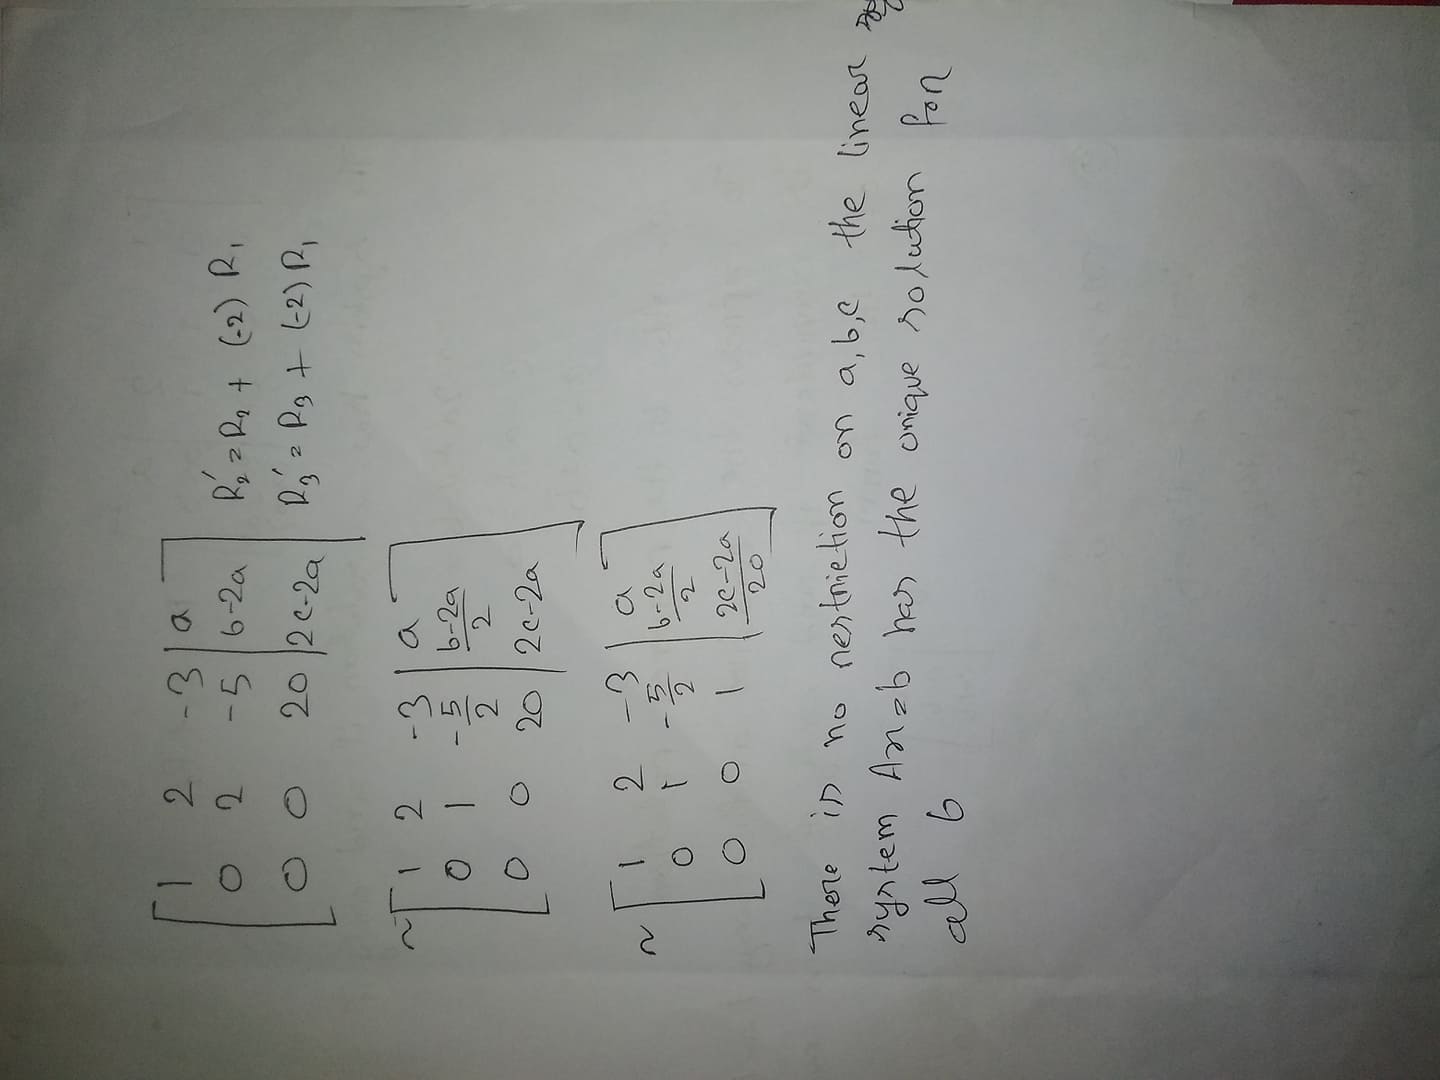 [1 2 -3 | a]
[0 2 -5 | b-2a] R₂′ = R₂ + (-2) R₁
[0 0 20 | 2c-2a] R₃′ = R₃ + (-2) R₁
~ [1 2 -3 | a]
[0 1 -5/2 | (b-2a)/2]
[0 0 20 | 2c-2a]
~ [1 2 -3 | a]
[0 1 -5/2 | (b-2a)/2]
[0 0 1 | (2c-2a)/20]
There is no restriction on a,b,c the linear
system Ax=b has the unique solution for
all b